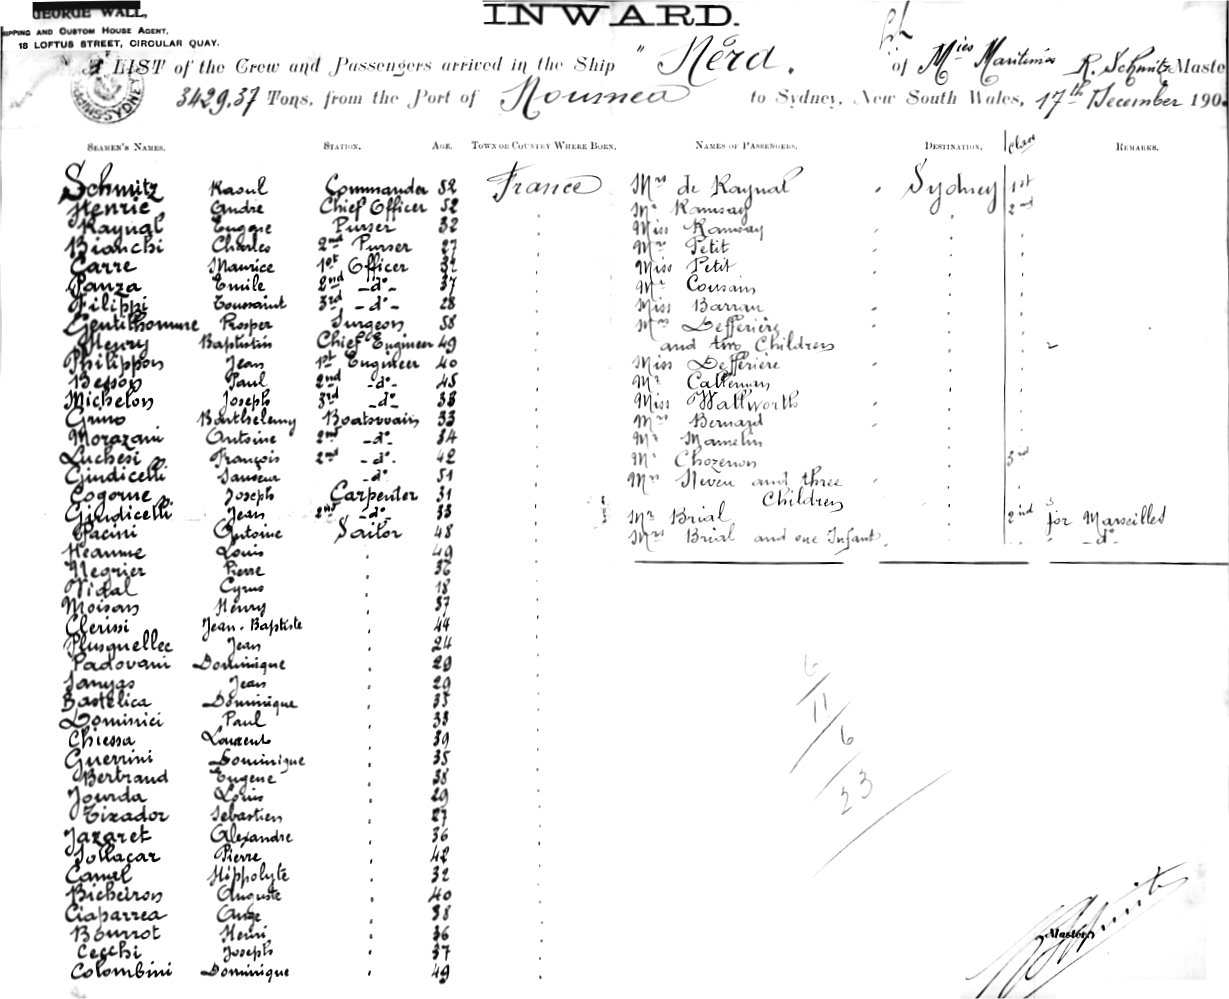 GEORGE WALL,
SHIPPING AND CUSTOM HOUSE AGENT,
18 LOFTUS STREET, CIRCULAR QUAY.
INWARD.
A LIST of the Crew and Passengers arrived in the Ship "Néra. of Mies Maritimes R. Schmitz Master
3429,37 Tons, from the Port of Noumea to Sydney, New South Wales, 17th December 190
SEAMEN'S NAMES. STATION. AGE. TOWN OR COUNTRY WHERE BORN. NAMES OF PASSENGERS. DESTINATION. Class REMARKS.
Schmitz Raoul Commander 52 France Mrs de Raynal Sydney 1st
Henric Andre Chief Officer 52 Mr Ramsay 2nd
Raynal Eugene Purser 32 Miss Ramsay
Bianchi Charles 2nd Purser 27 Mrs Petit
Carre Maurice 1st Officer 32 Miss Petit
Panza Emile 2nd -do- 37 Mr Cousain
Filippi Toussaint 3rd -do- 28 Miss Barrau
Gentilhomme Prosper Surgeon 58 Mrs Defferière
Henry Baptistin Chief Engineer 49 and two Children 2
Philippon Jean 1st Engineer 40 Miss Defferière
Besson Paul 2nd -do- 45 Mr Calteman
Michelon Joseph 3rd -do- 38 Miss Wallworth
Gruno Barthelemy Boatswain 33 Mrs Bernard
Morazani Antoine 2nd -do- 34 Mr Mamelin
Luchesi François 2nd -do- 42 Mr Chozenon 3rd
Giudicelli Sauveur -do- 51 Mrs Neven and three
Cogorne Joseph Carpenter 31 Children 3
Giudicelli Jean 2nd -do- 33 Mr Brial 2nd for Marseilles
Pacini Antoine Sailor 48 Mrs Brial and one Infant. -do-
Heaume Louis 49
Negrier Pierre 36
Vidal Cyrus 18
Moisan Henry 37
Clerissi Jean-Baptiste 44
Plusquellec Jean 24
Padovani Dominique 29
Sanyas Jean 29
Bastelica Dominique 35
Dominici Paul 33
Chiessa Laurent 39
Guerrini Dominique 35
Bertrand Eugene 38
Jourda Louis 29
Tirador Sebastien 27
Jazaret Alexandre 36
Sollacar Pierre 42
Camel Hippolyte 32
Bicheiron Auguste 40
Ciaparrea Ange 38
Bourrot Henri 36
Cecchi Joseph 37
Colombini Dominique 49
6
11
6
23
R Schmitz
Master.